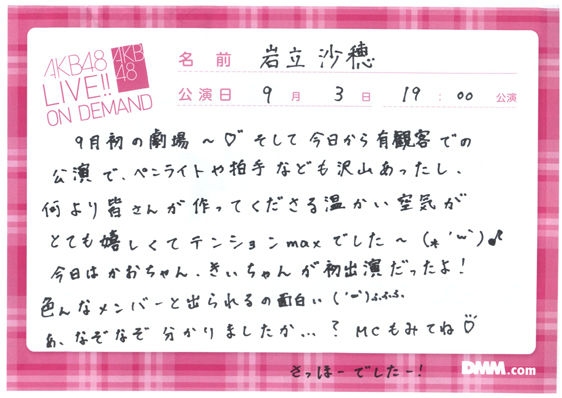 AKB48
LIVE!!
ON DEMAND
AKB
48
名前 岩立沙穂
公演日 9月 3日 19:00 公演
9月初の劇場〜♡そして今日から有観客での
公演で、ペンライトや拍手なども沢山あったし、
何より皆さんが作ってくださる温かい空気が
とても嬉しくてテンションmaxでした〜(*'ω')♪
今日はかおちゃん、きぃちゃんが初出演だったよ!
色んなメンバーと出られるの面白い('ω')ふふふ
あ、なぞなぞ分かりましたか…?MCもみてね♡
さっほーでしたー!
DMM.com